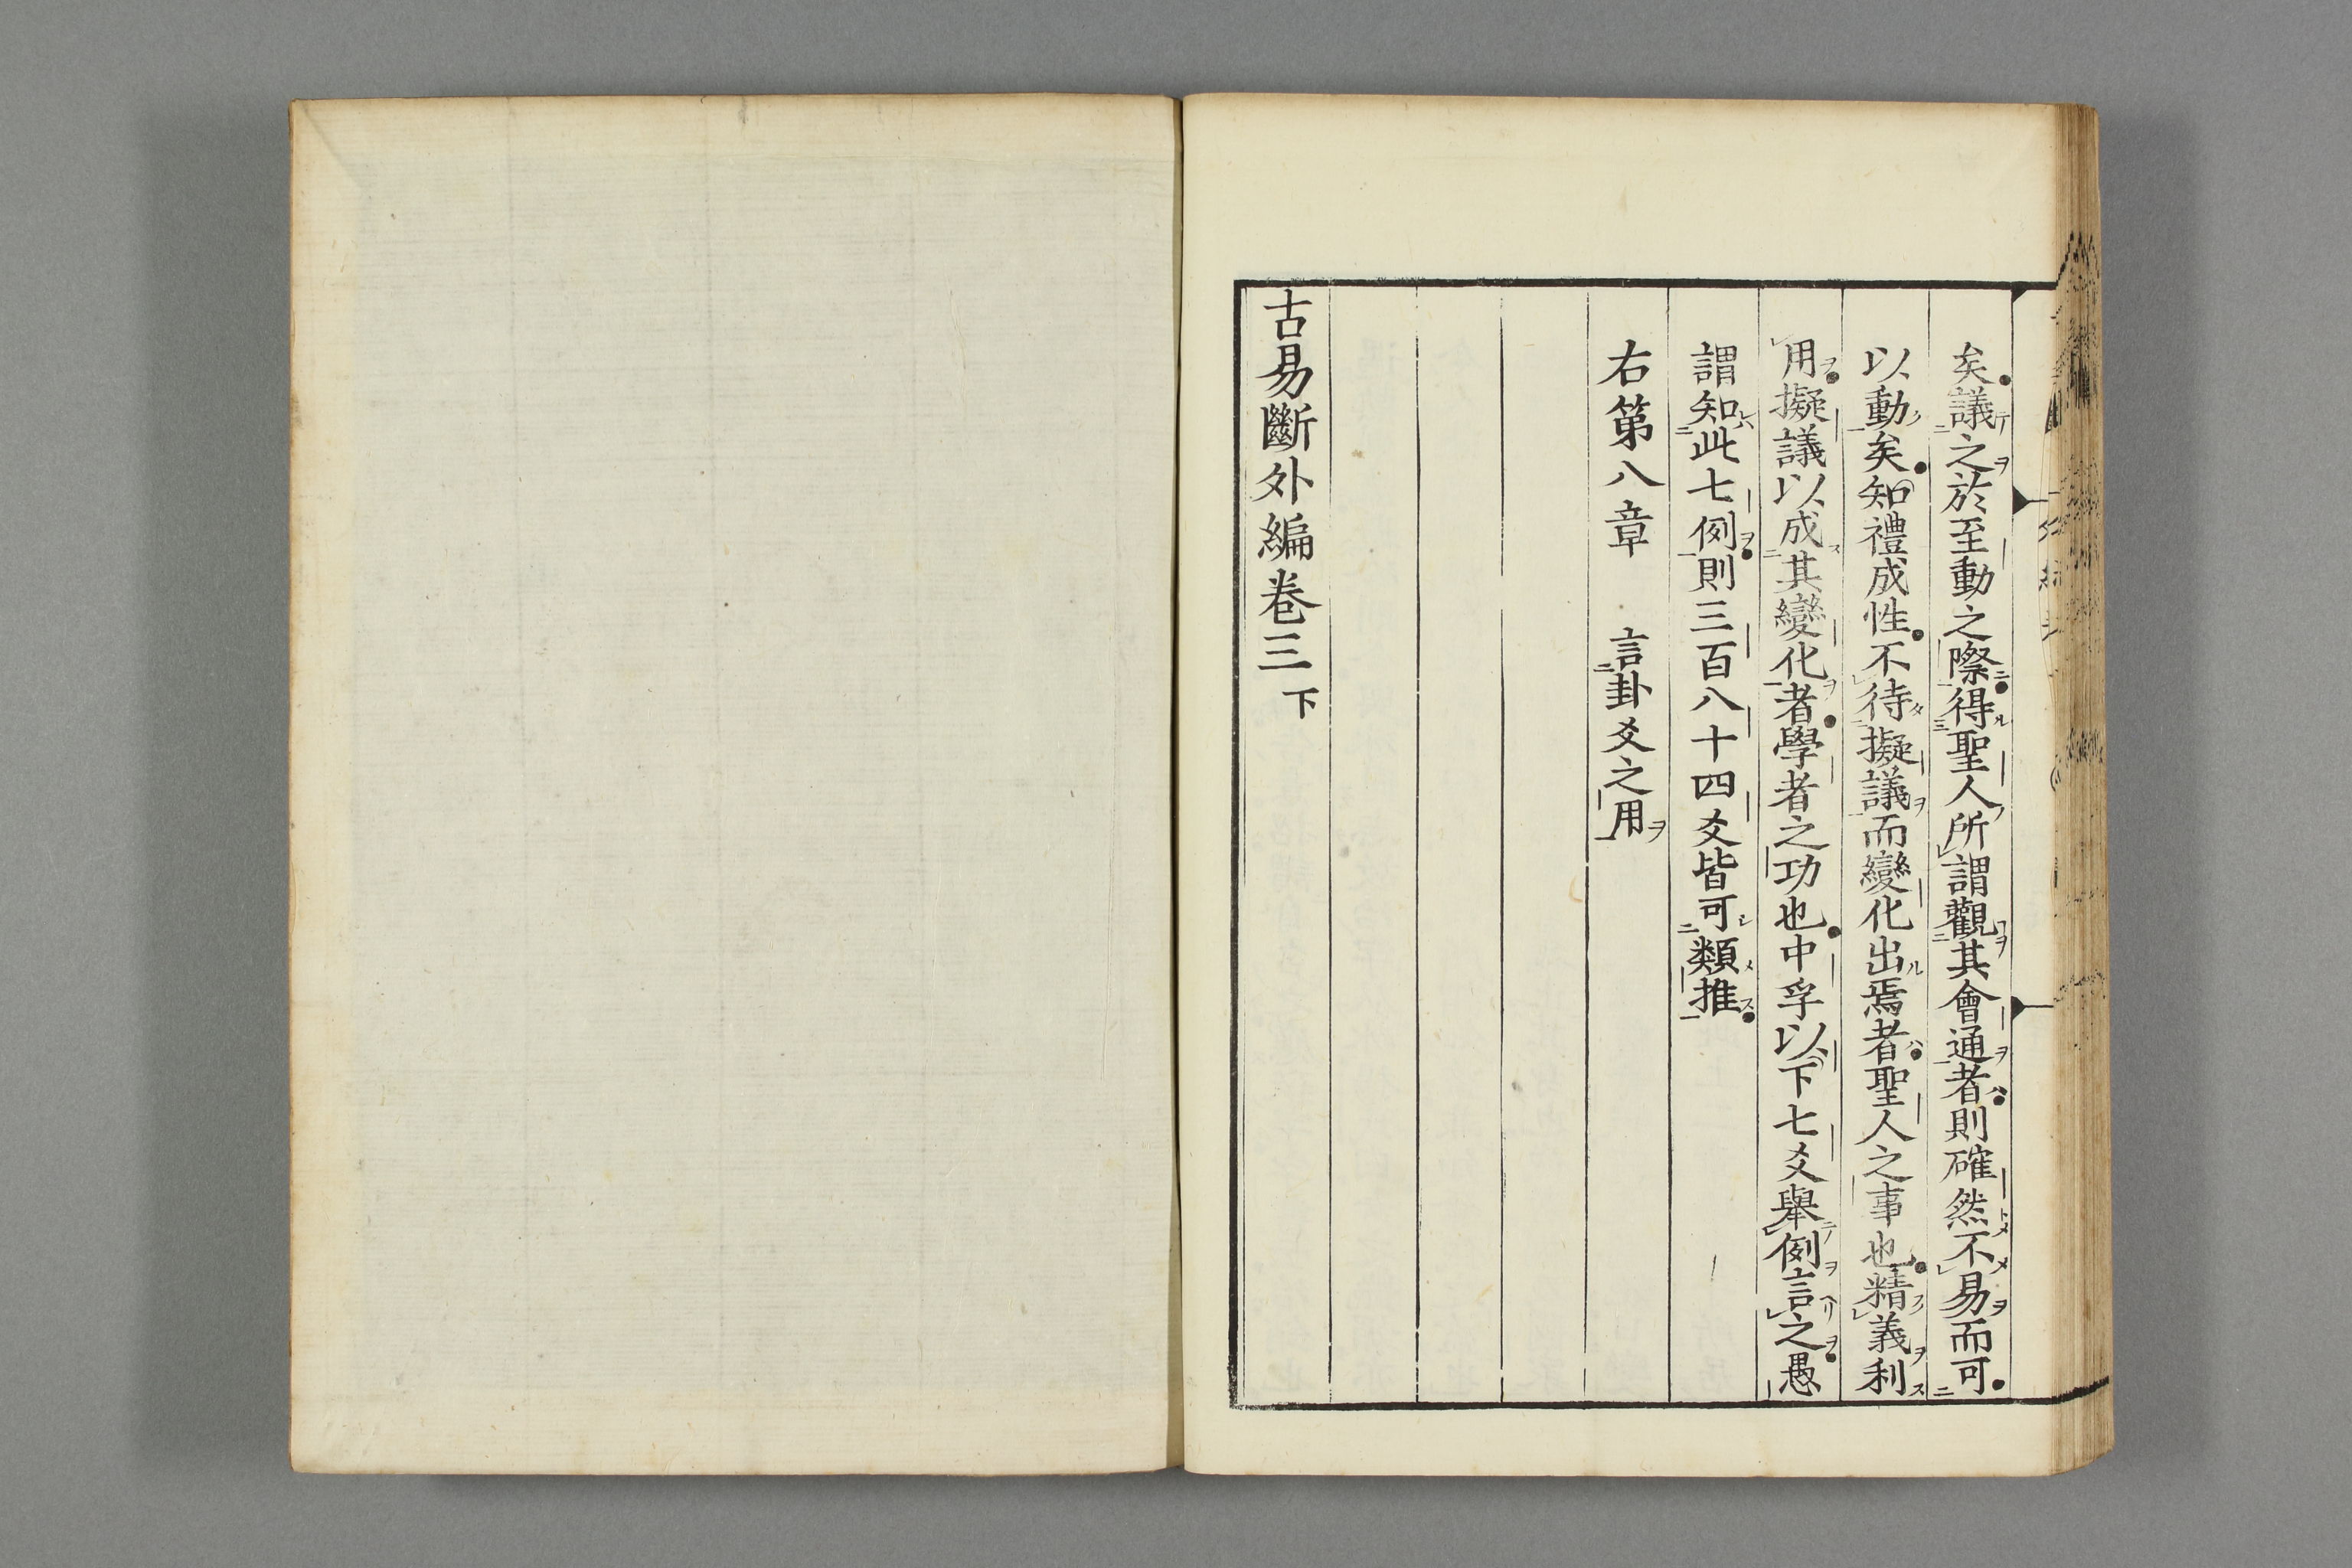 矣議之於至動之際得聖人所謂觀其會通者則確然不易而可
以動矣知禮成性不待擬議而變化出焉者聖人之事也精義利
用擬議以成其變化者學者之功也中孚以下七爻舉例言之愚
謂知此七例則三百八十四爻皆可類推
右第八章　言卦爻之用
古易斷外編卷三下